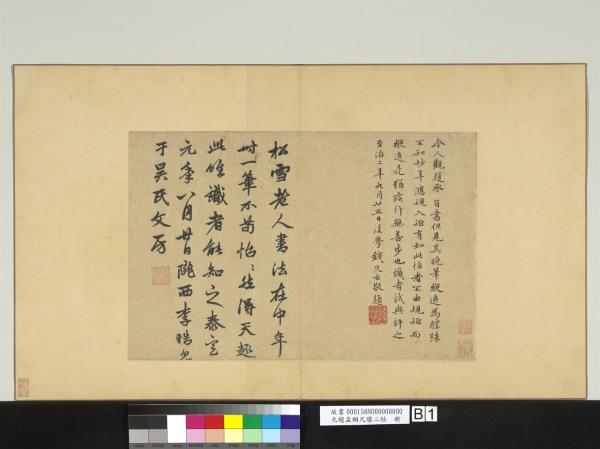 今人觀趙承旨書但見其晚筆縱逸為勝殊
不知妙年應規入矩有如此帖者不由規矩而
縱逸是猶跛行無善步也識者試與評之
至治二年九月廿五日後學錢良右敬題
松雪老人書法在中年
時一筆不苟怡怡然得天趣
此唯識者能知之泰定
元年八月廿日隴西李
于吳氏文房
故書 000158N000000000
元趙孟頫尺牘二帖 冊
B 1